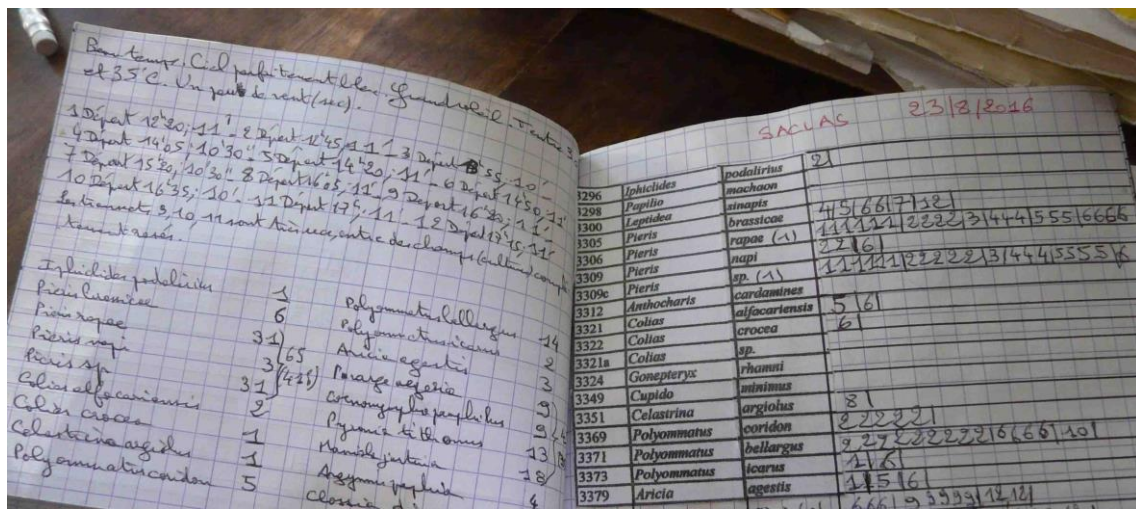 Beau temps. Ciel parfaitement bleu. Grand soleil. T entre 3
et 35°C. Un peu de vent (sec).
1 Départ 12h20; 11' - 2 Départ 12h45; 11' - 3 Départ 55; 10'
4 Départ 14h05; 10'30" - 5 Départ 14h20; 11' - 6 Départ 14h50; 11'
7 Départ 15h20; 10'30" 8 Départ 16h05; 11' 9 Départ 16h20; 11'
10 Départ 16h35; 10' - 11 Départ 17h; 11' - 12 Départ 17h15; 11'
Les transects 9, 10, 11 sont très secs, entre des champs (cultures)
Iphiclides podalirius 1
Pieris brassicae 6
Pieris rapae 31
Pieris napi 3
Pieris sp. 31
65
Colias alfacariensis 2
Colias crocea 1
Celastrina argiolus 1
Polyommatus coridon 5
Polyommatus bellargus 14
Polyommatus icarus 2
Aricia agestis 3
Pararge aegeria 9
Coenonympha pamphilus 9
Pyronia tithonus 13
Maniola jurtina 18
Argynnis paphia 4
SACLAS 23/8/2016
3296 Iphiclides podalirius 2|
3298 Papilio machaon
3300 Leptidea sinapis
3305 Pieris brassicae 4|5|66|7|12|
3306 Pieris rapae (1) 11111|2222|3|444|555|6666
3309 Pieris napi 22|6|
3309c Pieris sp. (1) 11111|22222|3|444|5555|6
3312 Anthocharis cardamines
3321 Colias alfacariensis 5|6|
3322 Colias crocea 6|
3321a Colias sp.
3324 Gonepteryx rhamni
3349 Cupido minimus
3351 Celastrina argiolus 8|
3369 Polyommatus coridon 22222|
3371 Polyommatus bellargus 222222222|6666|10|
3373 Polyommatus icarus 1|6|
3379 Aricia agestis 1|5|6|
666|99999|12,12|